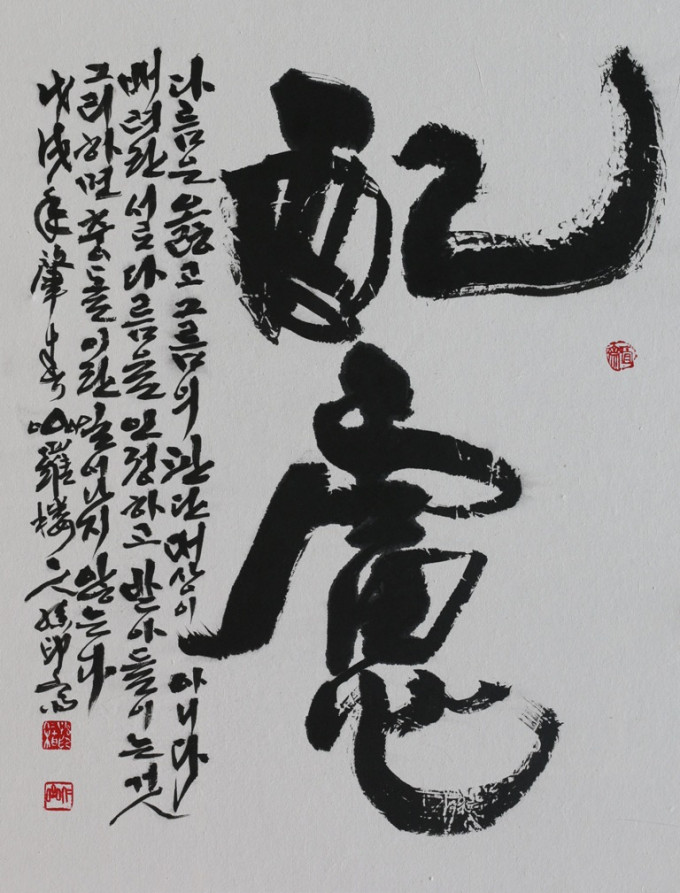 配慮
다름은 옳고 그름의 판단 대상이 아니다
배려란 서로 다름을 인정하고 받아들이는 것
그리하면 충돌이란 일어나지 않는다
戊戌年肇春 羅樓